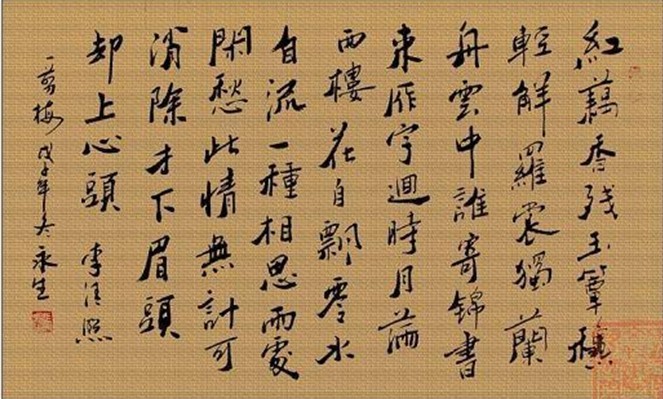 紅藕香残玉簟穐
輕解羅裳獨蘭
舟雲中誰寄錦書
来雁字迴時月滿
西樓花自飄零水
自流一種相思兩處
閑愁此情無計可
消除才下眉頭
却上心頭 李清照
一剪梅 戊子年冬永生